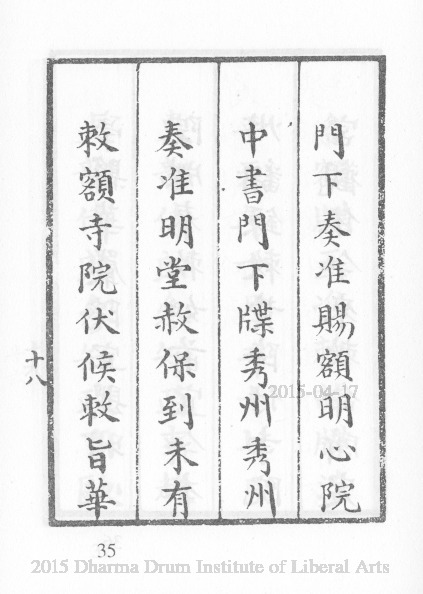 門下奏准賜額明心院
中書門下牒秀州秀州
奏准明堂赦保到未有
敕額寺院伏候敕旨華
十八
2015-04-17
35
2015 Dharma Drum Institute of Liberal Arts